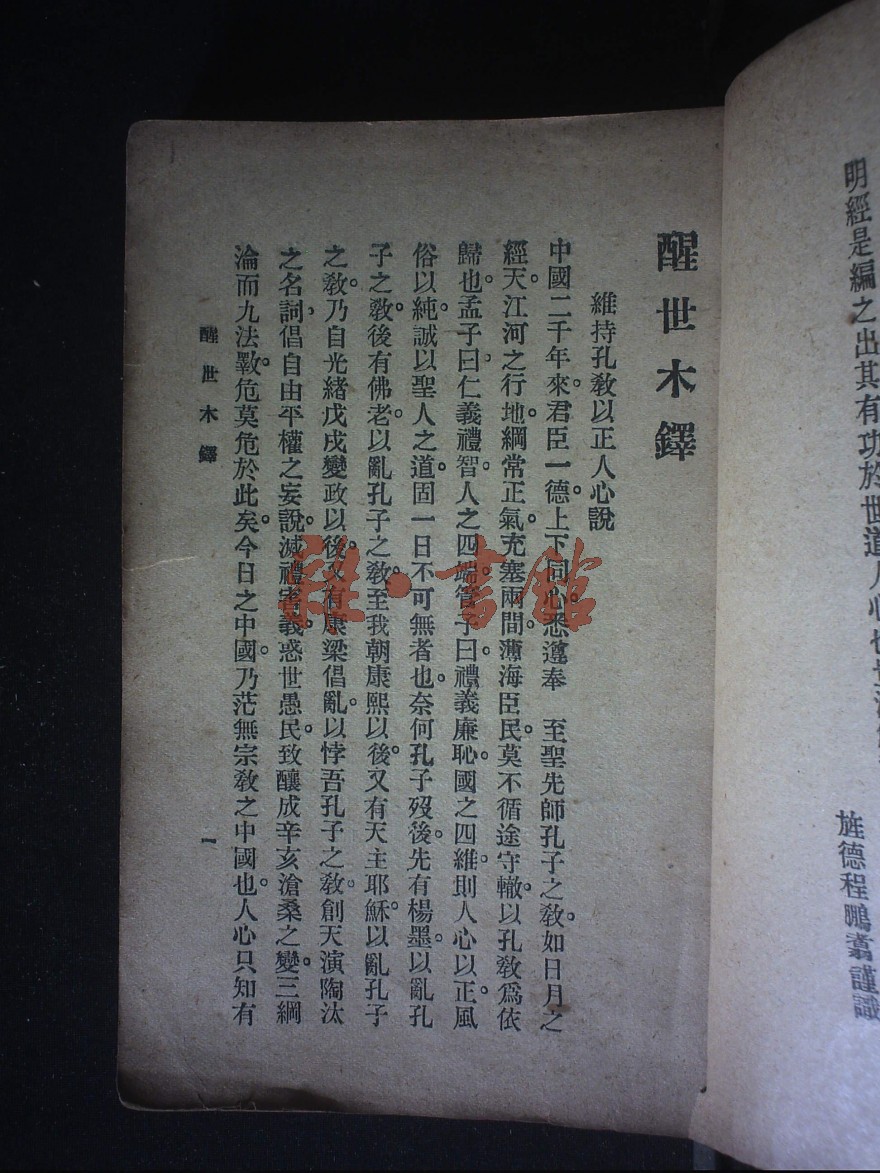 明經是編之出其有功於世道人心也
旌德程鵬翥謹識
醒世木鐸
維持孔敎以正人心說
中國二千年來。君臣一德。上下同心。悉遵奉　至聖先師孔子之敎。如日月之
經天。江河之行地。綱常正氣。充塞兩間。薄海臣民。莫不循途守轍。以孔敎爲依
歸也。孟子曰。仁義禮智。人之四端。管子曰。禮義廉恥。國之四維。則人心以正。風
俗以純。誠以聖人之道。固一日不可無者也。奈何孔子歿後。先有楊墨。以亂孔
子之敎。後有佛老。以亂孔子之敎。至我朝康熙以後。又有天主耶穌。以亂孔子
之敎。乃自光緒戊戌變政以後。又有康梁倡亂。以悖吾孔子之敎。創天演陶汰
之名詞。倡自由平權之妄說。滅禮害義。惑世愚民。致釀成辛亥滄桑之變。三綱
淪而九法斁。危莫危於此矣。今日之中國。乃茫無宗敎之中國也。人心只知有
醒世木鐸
一
雜·書館